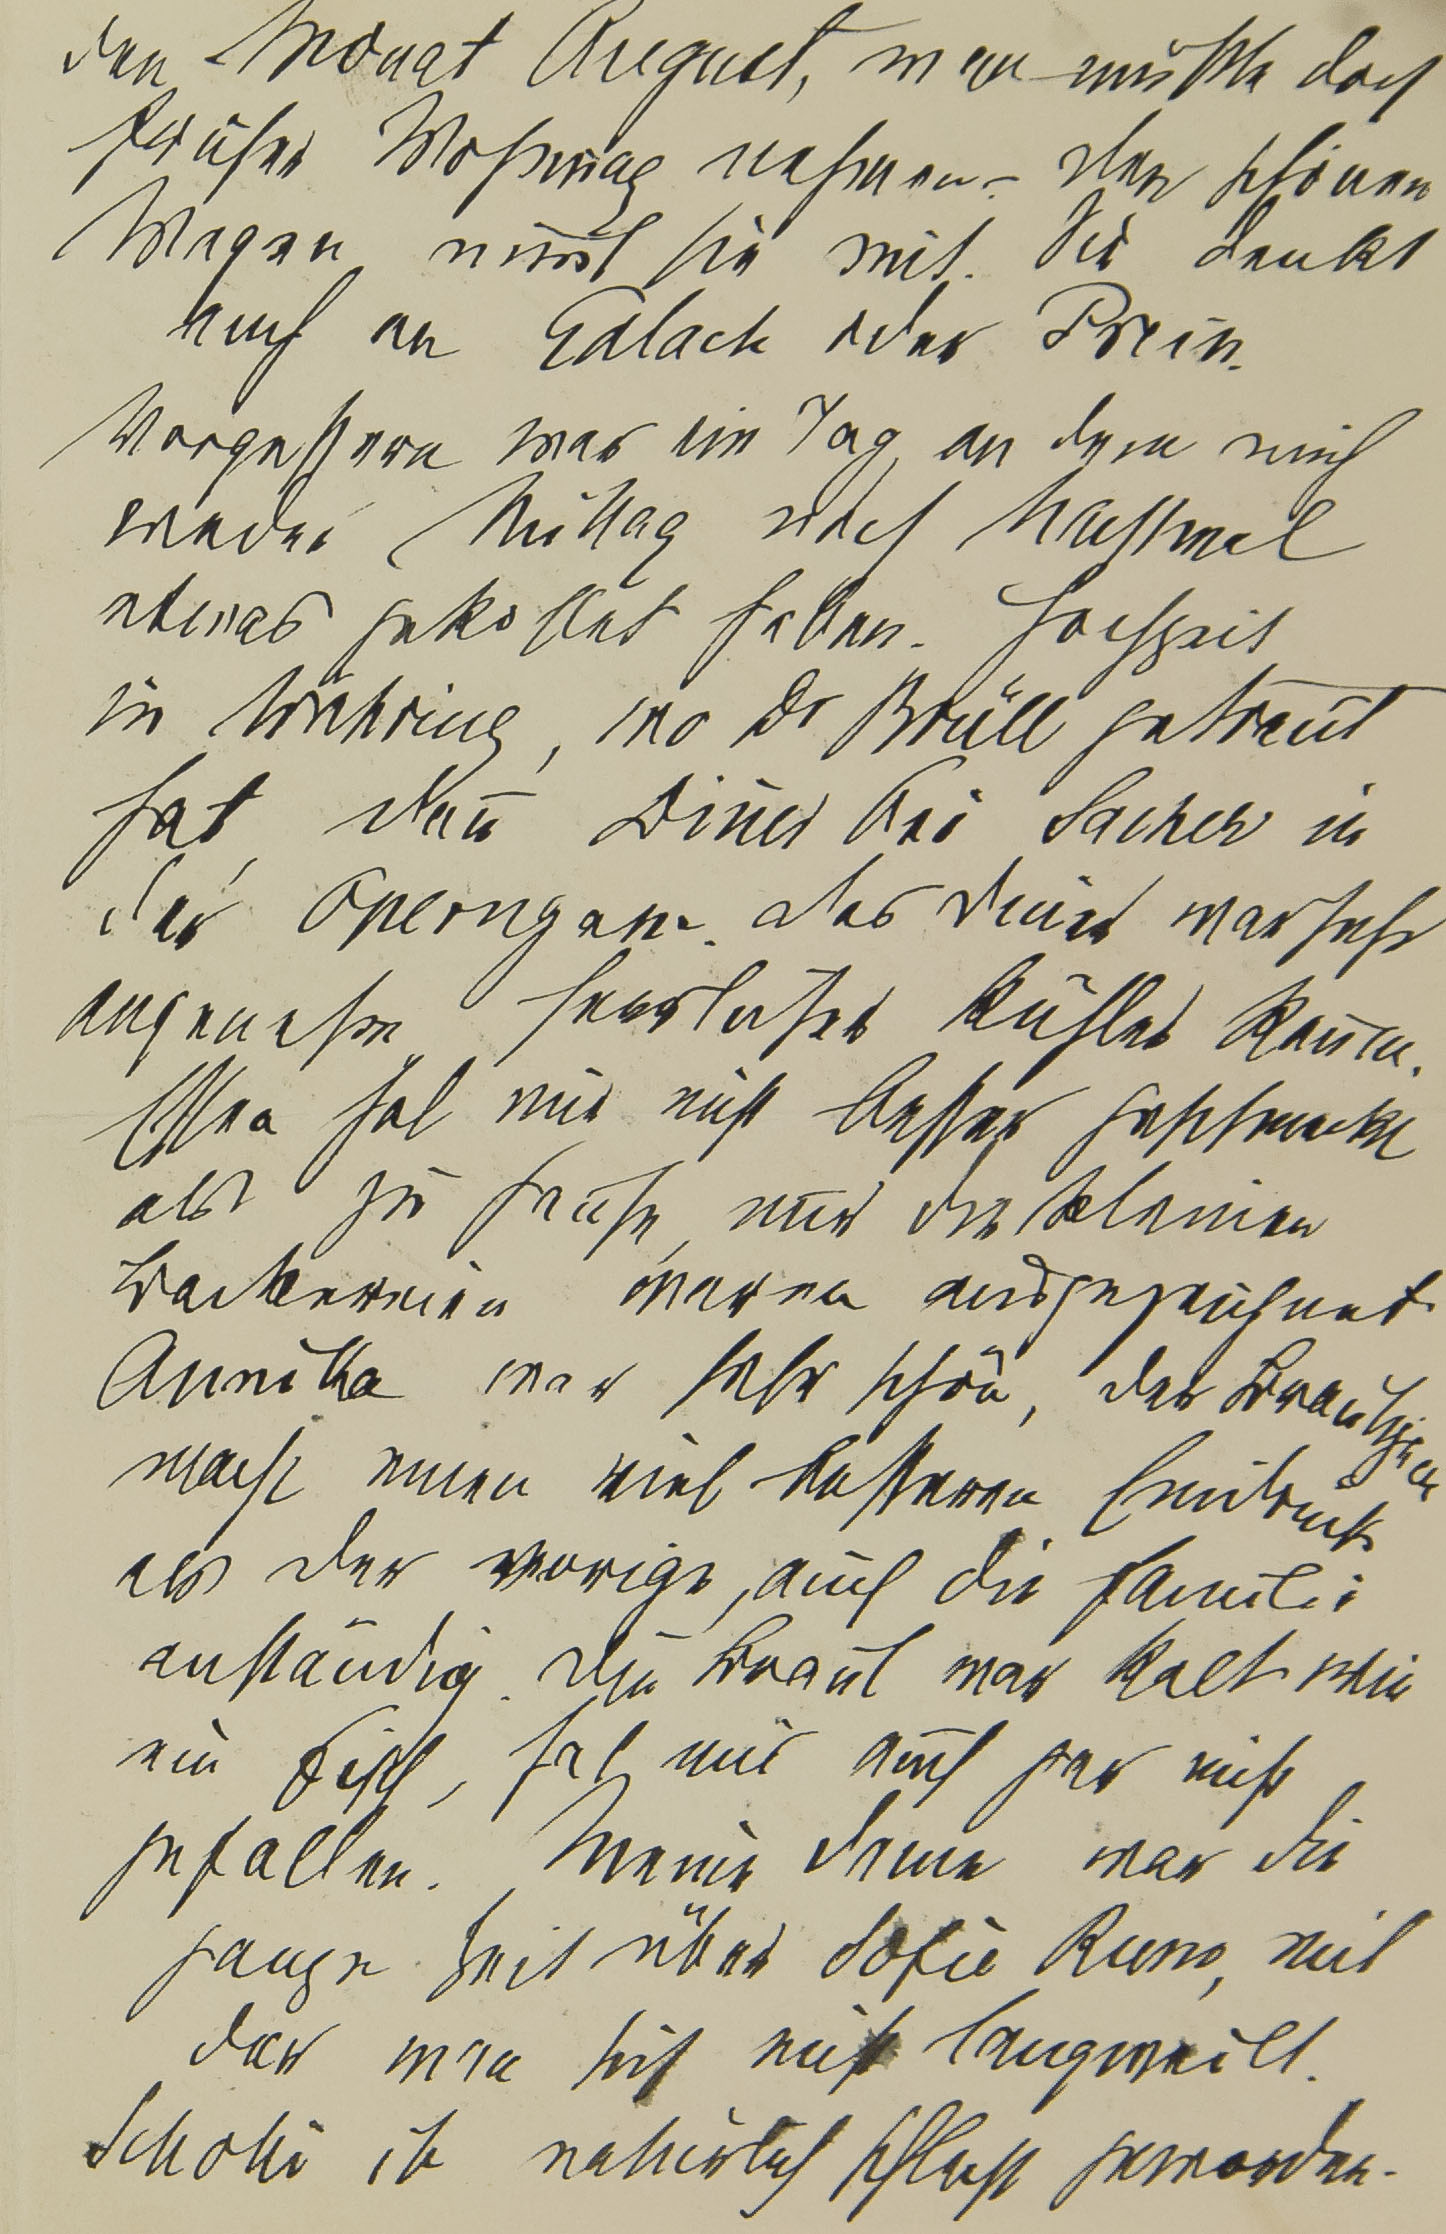 den Monat August, man müßte doch
früher Wohnung nehmen – den schönen
Wagen nimt sie mit. Sie denkt
auch an Edlach oder Prein.
Vorgestern war ein Tag, an dem mich
weder Mittag noch Nachtmal
etwas gekostet haben. Hochzeit
in Währing, wo Dr Brüll getraut
hat, dan̄ Diner bei Sacher in
der Operngasse. das Diner war sehr
angenehm, herrlicher kühler Raum.
Essen hat mir nicht besser geschmeckt
als zu Hause, nur die kleinen
Backereien waren ausgezeichnet
Annitta war sehr schön, der Bräutigam
macht einen viel besseren Eindruck
als der vorige, auch die Familie
anständig. Die Braut war kalt wie
ein Fisch, hat mir auch gar nicht
gefallen. Meine Dame war die
ganze Zeit über Sofie
der man sich nicht langweilt.
ist natürlich schlecht geworden.